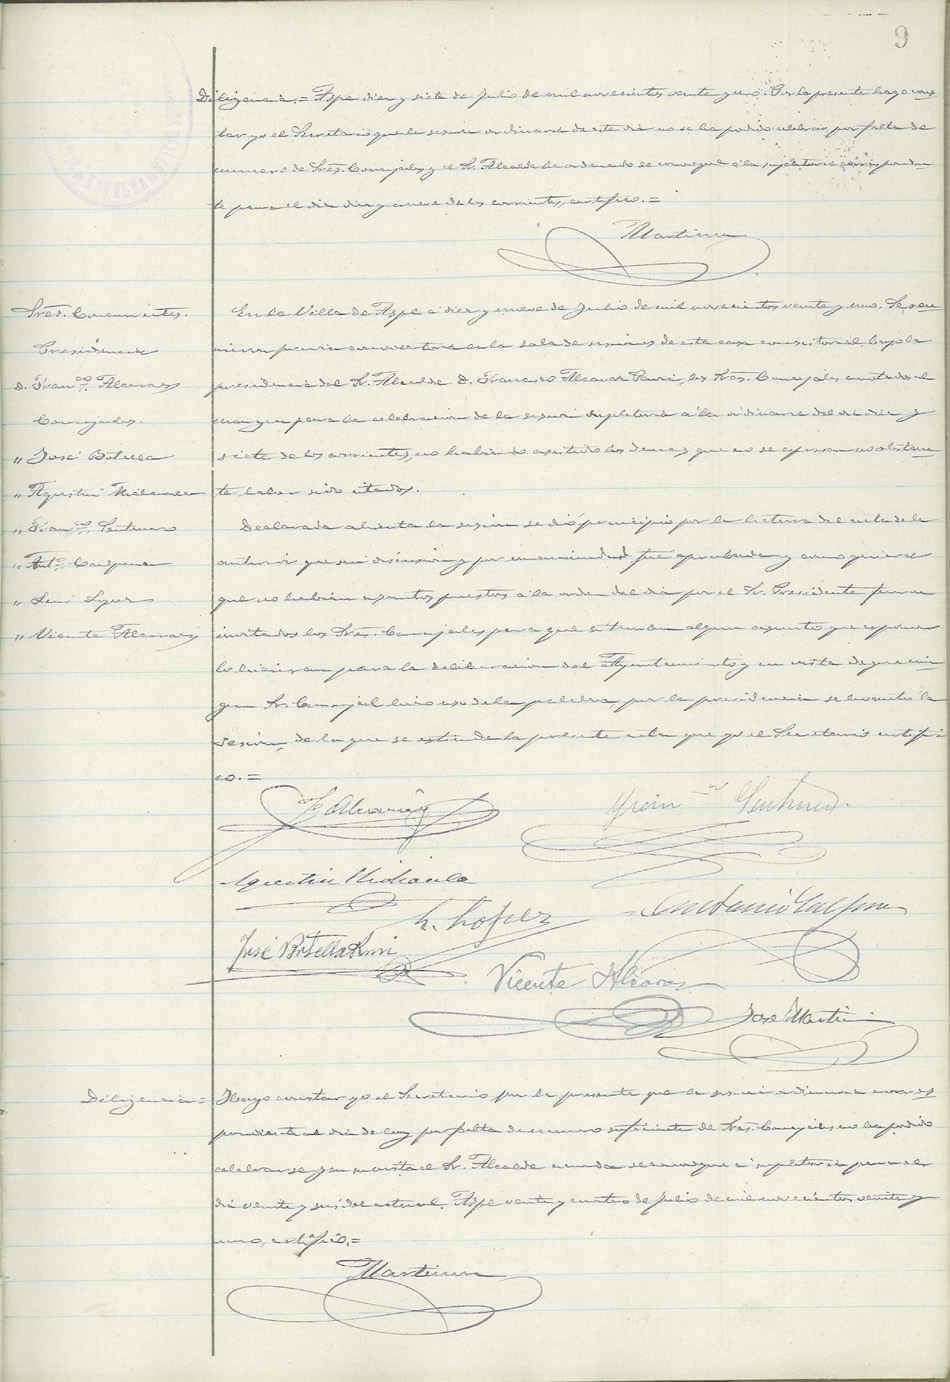 9
Diligencia.= Aspe diez y siete de Julio de mil novecientos veinte y uno. Por la presente hago cons
tar yo el Secretario que la sesion ordinaria de este dia no se ha podido celebrar por falta de
numero de Sres. Concejales y el Sr. Alcalde ha ordenado se convoque á la supletoria correspondien
te para el dia diez y nueve de los corrientes, certifico.=
Martinez
Sres. Concurrentes.
Presidencia
D. Franco. Alcaraz
Concejales.
" José Botella
" Agustin Mirambell
" Franco. Santonja
" Anto. Calpena
" Luis Lopez
" Vicente Alcaraz
En la Villa de Aspe á diez y nueve de Julio de mil novecientos veinte y uno. Se reu
nieron previa convocatoria en la sala de sesiones de esta casa consistorial, bajo la
presidencia del Sr. Alcalde D. Francisco Alcaraz los Sres. Concejales anotados al
margen para la celebracion de la sesion supletoria á la ordinaria del dia diez y
siete de los corrientes, no habiendo asistido los demas que no se espresan no obstan
te haber sido citados.
Declarada abierta la sesion se dió principio por la lectura del acta de la
anterior que sin discusion y por unanimidad fue aprobada y como quiera
que no habian asuntos puestos á la orden del dia por el Sr. Presidente fueron
invitados los Sres. Concejales para que si tenian algun asunto que esponer
lo hicieran para la deliberacion del Ayuntamiento y en vista de que nin
gun Sr. Concejal hizo uso de la palabra, por la presidencia se levantó la
sesion, de la que se estiende la presente acta que yo el Secretario certifi
co.=
F. Alcaraz
Agustin
L. Lopez
Antonio Calpena
José Botella
Vicente Alcaraz
José Martinez
Diligencia= Hago constar yo el Secretario por la presente que la sesion ordinaria corres
pondiente al dia de hoy por falta de numero suficiente de Sres. Concejales no ha podido
celebrarse y en su vista el Sr. Alcalde acuerda se convoque á supletoria para el
dia veinte y seis del actual. Aspe veinte y cuatro de Julio de mil novecientos veinte y
uno, certifico.=
Martinez